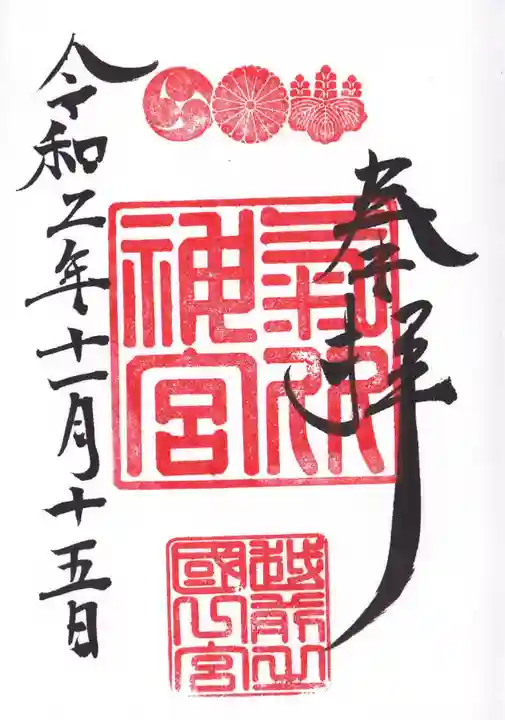 奉拝
氣比
神宮
越前一
國一宮
令和二年十一月十五日